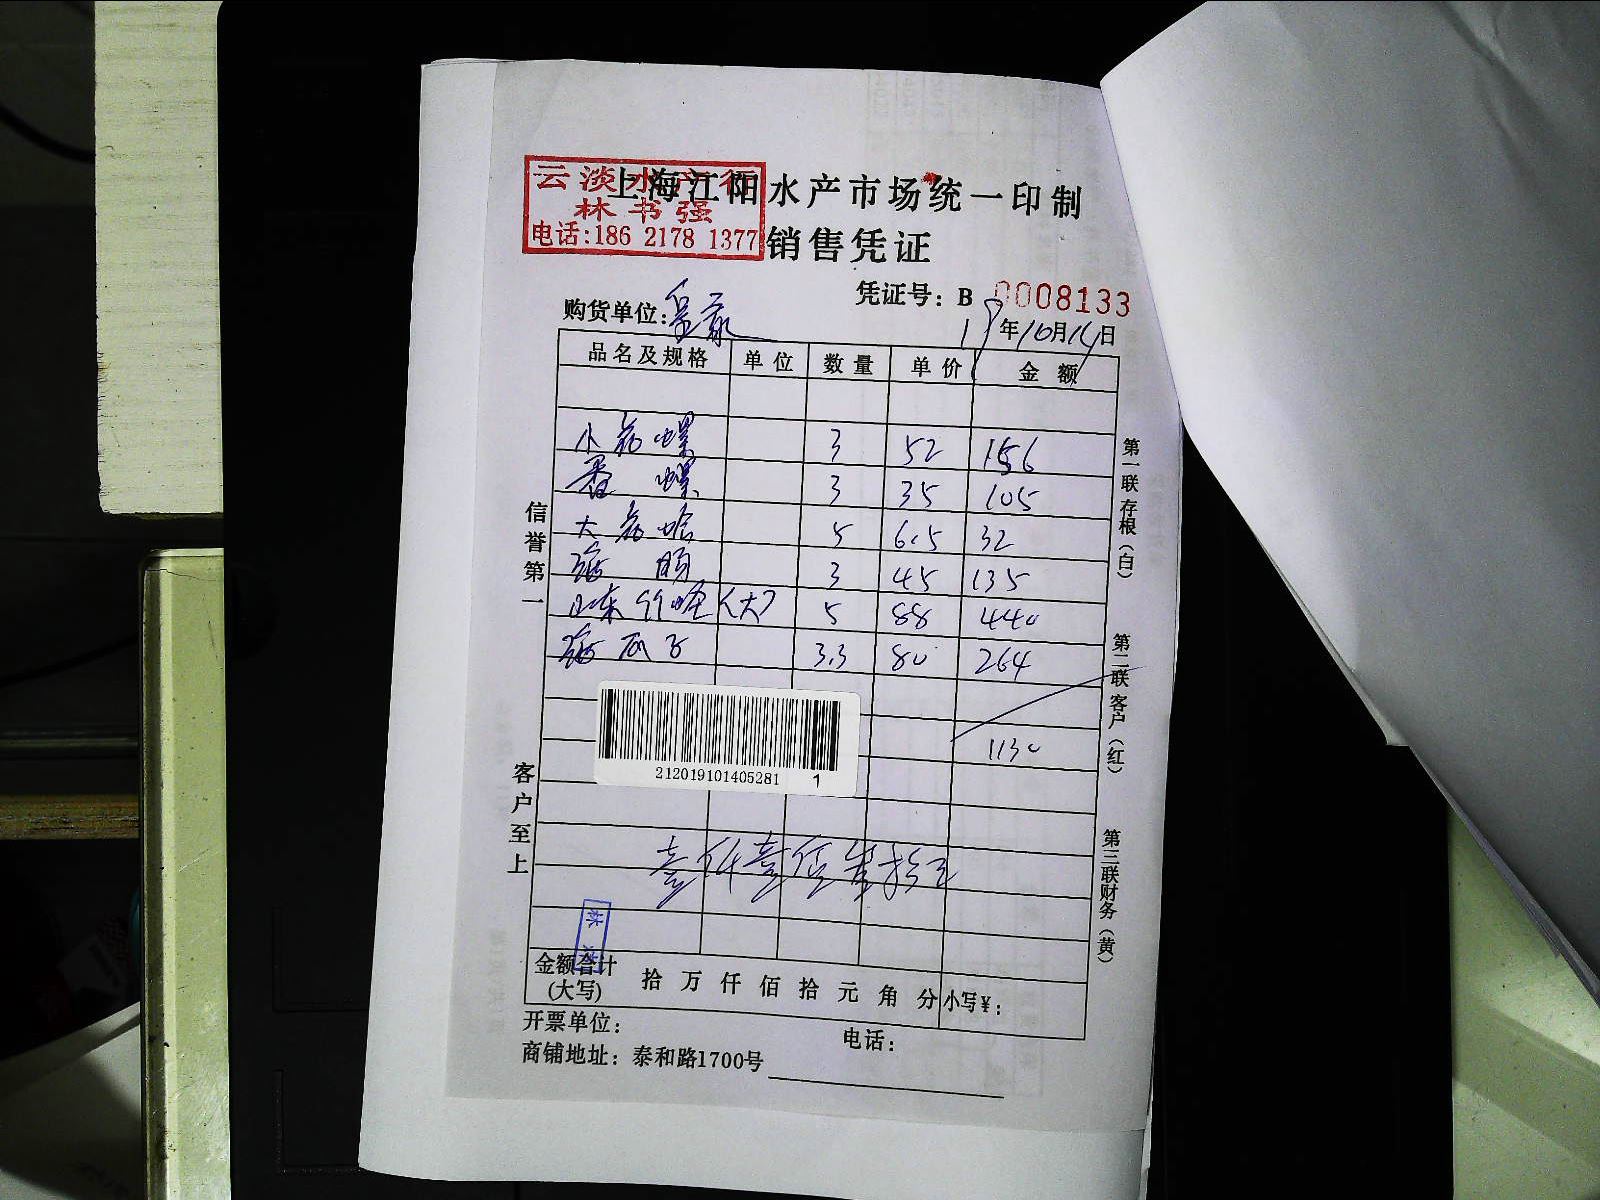 云淡水产行
林书强
电话:186 2178 1377
上海江阳水产市场统一印制
销售凭证
凭证号：B 0008133
购货单位：
19年10月14日
品名及规格 单位 数量 单价 金额
小花螺 3 52 156
香螺 3 35 105
大花蛤 5 6.5 32
海肠 3 45 135
山东竹蛏(大) 5 88 440
海瓜子 3.3 80 264
1130
212019101405281 1
壹仟壹佰叁拾元
金额合计
(大写)
拾 万 仟 佰 拾 元 角 分 小写¥：
开票单位：
电话：
商铺地址：泰和路1700号
信誉第一
客户至上
第一联存根（白）
第二联客户（红）
第三联财务（黄）